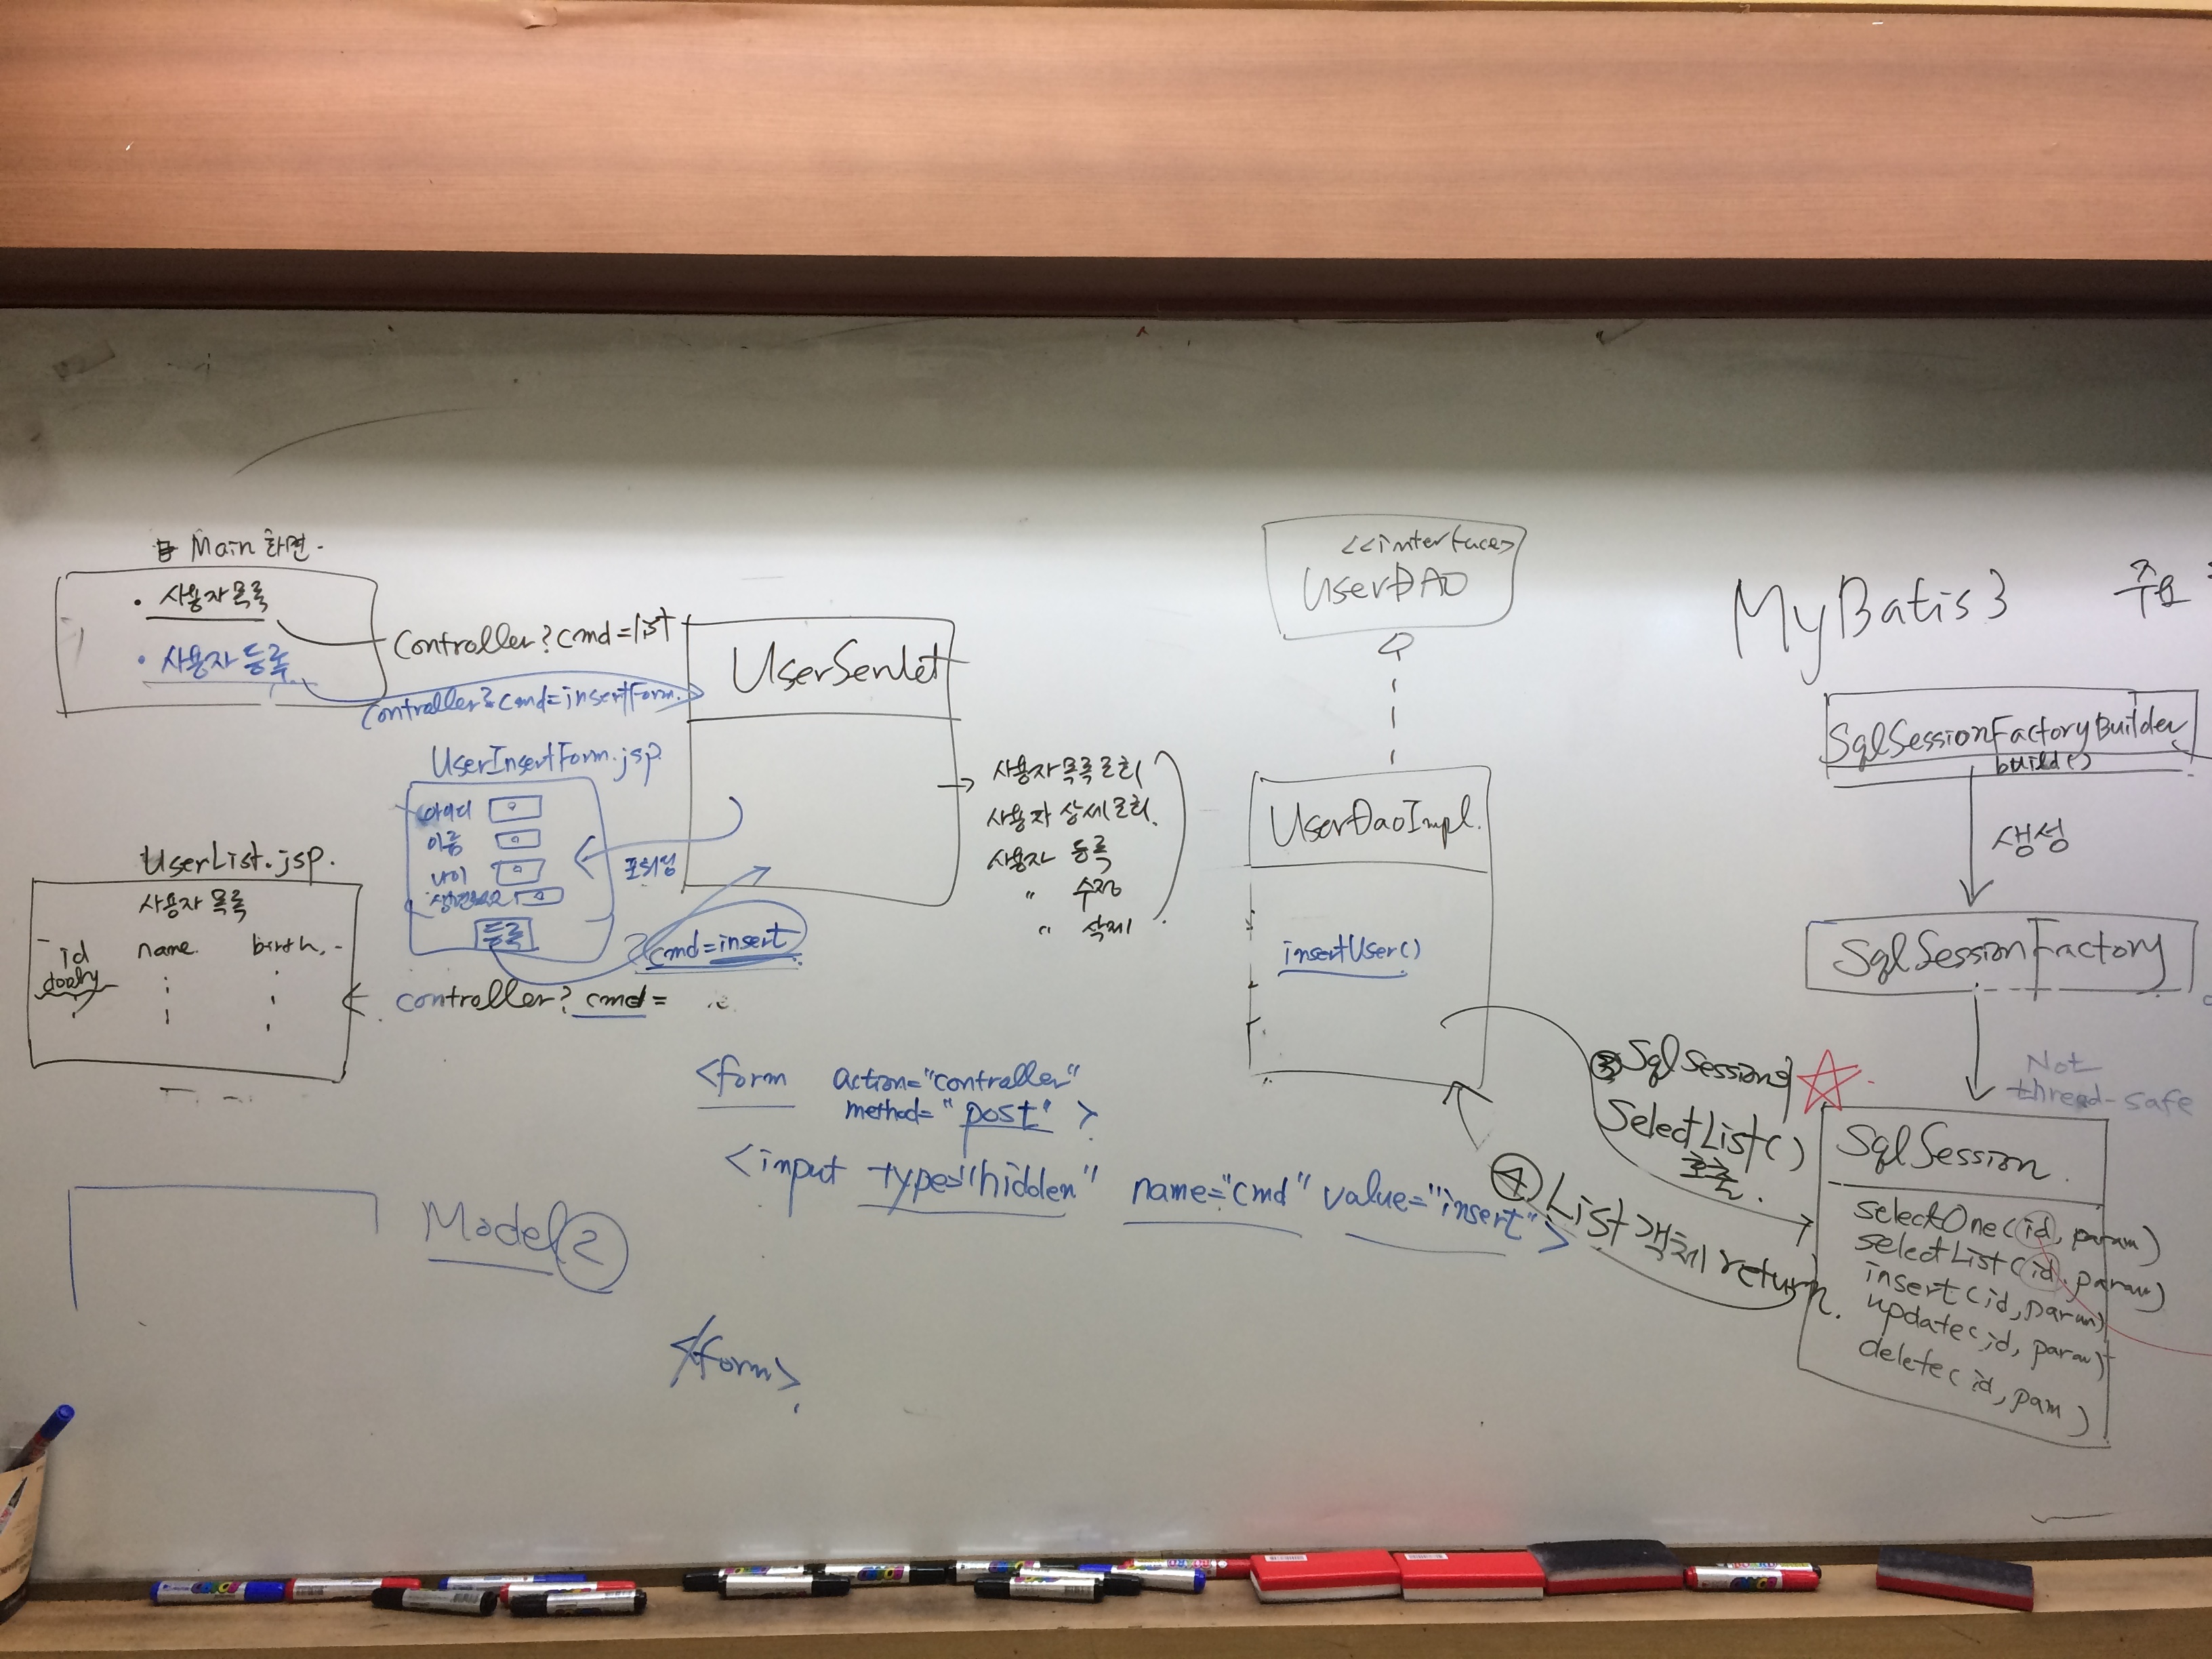 Main 화면.
• 사용자 목록
• 사용자 등록
Controller?cmd=list
Controller?cmd=insertForm.
UserServlet
UserInsertForm.jsp
아이디
이름
나이
등록
포워딩
?cmd=insert
사용자 목록 조회
사용자 상세 조회.
사용자 등록
" 수정
" 삭제
UserList.jsp.
사용자 목록
id name. birth.
dooly
controller? cmd=
<form action="controller"
method="post" >
<input type="hidden" name="cmd" value="insert">
</form>
Model ②
<<interface>>
UserDAO
UserDaoImpl.
insertUser()
③ SqlSession의
SelectList()
호출.
④ List 객체 return.
MyBatis 3 주요
SqlSessionFactoryBuilder
build()
생성
SqlSessionFactory
Not
thread-safe
SqlSession
selectOne(id, param)
selectList(id, param)
insert(id, param)
update(id, param)
delete(id, pam)